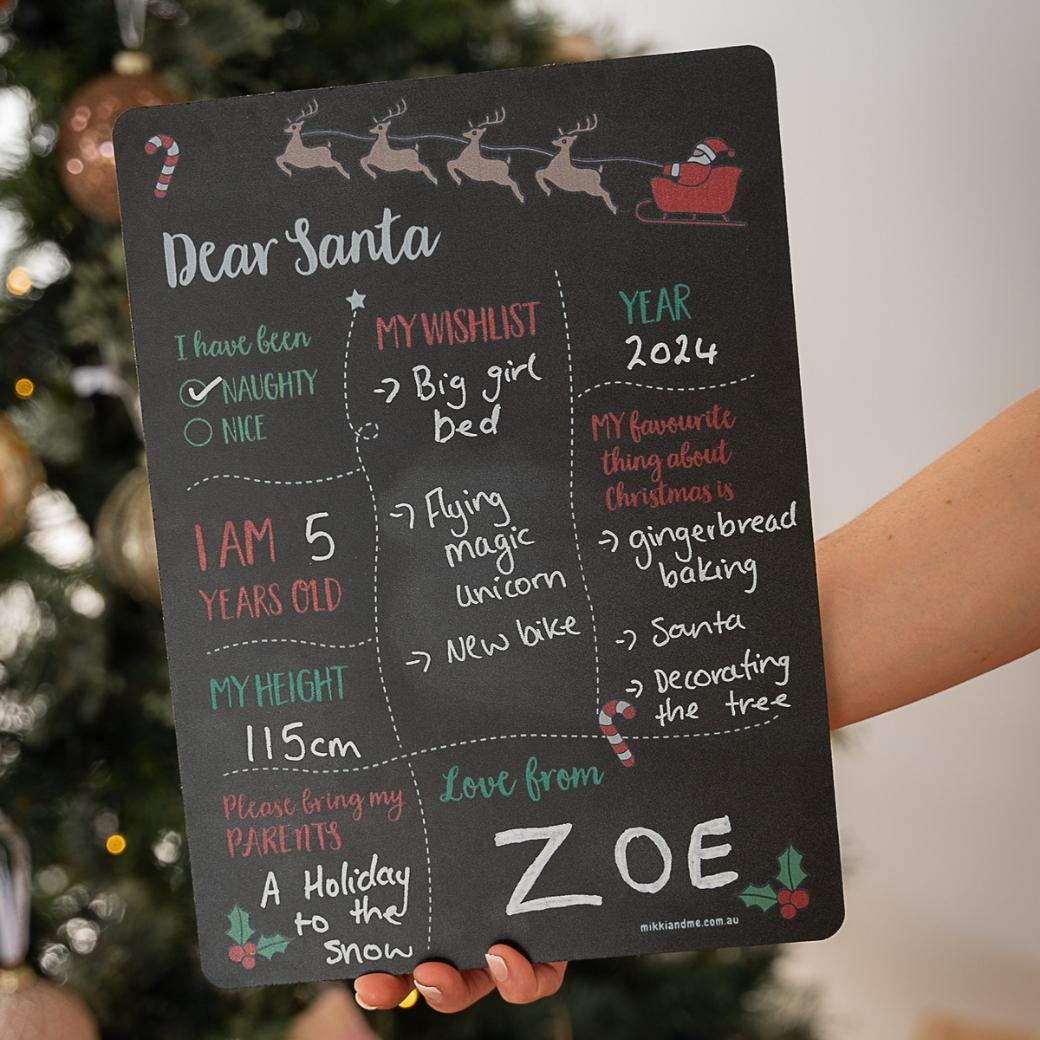 Dear Santa
I have been
NAUGHTY
NICE
I AM 5
YEARS OLD
MY HEIGHT
115cm
Please bring my
PARENTS
A Holiday
to the
snow
MY WISHLIST
-> Big girl
bed
-> Flying
magic
unicorn
-> New bike
YEAR
2024
MY favourite
thing about
Christmas is
-> gingerbread
baking
-> Santa
-> Decorating
the tree
Love from
ZOE
mikkiandme.com.au